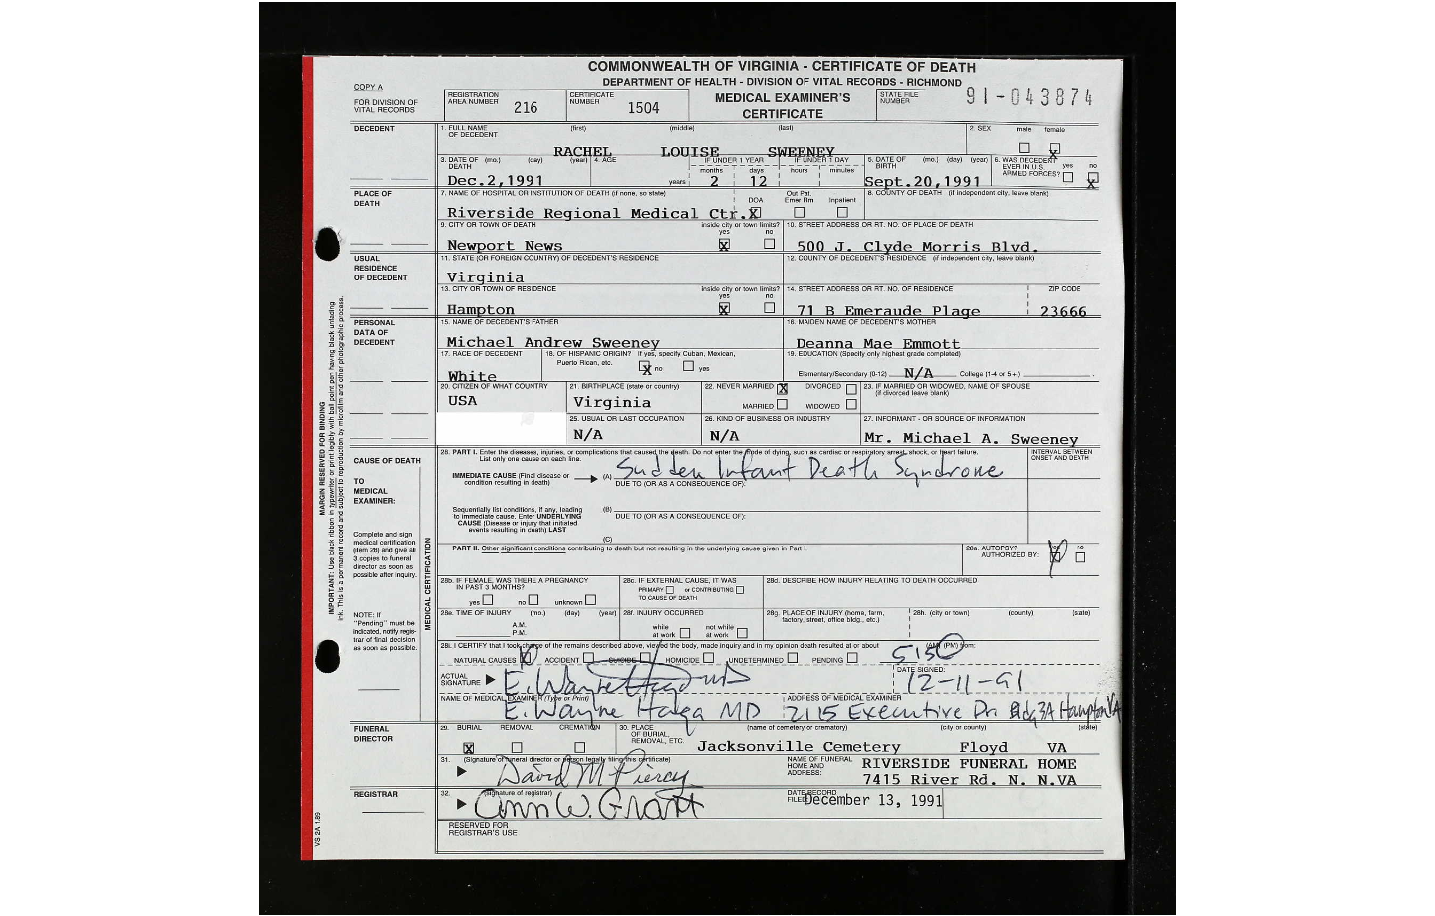 COMMONWEALTH OF VIRGINIA - CERTIFICATE OF DEATH
DEPARTMENT OF HEALTH - DIVISION OF VITAL RECORDS - RICHMOND
COPY A
FOR DIVISION OF VITAL RECORDS
REGISTRATION AREA NUMBER 216
CERTIFICATE NUMBER 1504
MEDICAL EXAMINER'S CERTIFICATE
STATE FILE NUMBER 91-043874
DECEDENT
1. FULL NAME OF DECEDENT (first) (middle) (last)
RACHEL LOUISE SWEENEY
2. SEX male female X
3. DATE OF DEATH (mo.) (day) (year)
Dec.2,1991
4. AGE years IF UNDER 1 YEAR months days IF UNDER 1 DAY hours minutes
2 12
5. DATE OF BIRTH (mo.) (day) (year)
Sept.20,1991
6. WAS DECEDENT EVER IN U.S. ARMED FORCES? yes no X
PLACE OF DEATH
7. NAME OF HOSPITAL OR INSTITUTION OF DEATH (if none, so state)
Riverside Regional Medical Ctr.X
DOA Out Pst. Emer Rm Inpatient
8. COUNTY OF DEATH (if independent city, leave blank)
9. CITY OR TOWN OF DEATH inside city or town limits? yes no
Newport News X
10. STREET ADDRESS OR RT. NO. OF PLACE OF DEATH
500 J. Clyde Morris Blvd.
USUAL RESIDENCE OF DECEDENT
11. STATE (OR FOREIGN COUNTRY) OF DECEDENT'S RESIDENCE
Virginia
12. COUNTY OF DECEDENT'S RESIDENCE (if independent city, leave blank)
13. CITY OR TOWN OF RESIDENCE inside city or town limits? yes no
Hampton X
14. STREET ADDRESS OR RT. NO. OF RESIDENCE ZIP CODE
71 B Emeraude Plage 23666
PERSONAL DATA OF DECEDENT
15. NAME OF DECEDENT'S FATHER
Michael Andrew Sweeney
16. MAIDEN NAME OF DECEDENT'S MOTHER
Deanna Mae Emmott
17. RACE OF DECEDENT
White
18. OF HISPANIC ORIGIN? If yes, specify Cuban, Mexican, Puerto Rican, etc. X no yes
19. EDUCATION (Specify only highest grade completed)
Elementary/Secondary (0-12) N/A College (1-4 or 5+)
20. CITIZEN OF WHAT COUNTRY
USA
21. BIRTHPLACE (state or country)
Virginia
22. NEVER MARRIED X DIVORCED MARRIED WIDOWED
23. IF MARRIED OR WIDOWED, NAME OF SPOUSE (if divorced leave blank)
25. USUAL OR LAST OCCUPATION
N/A
26. KIND OF BUSINESS OR INDUSTRY
N/A
27. INFORMANT - OR SOURCE OF INFORMATION
Mr. Michael A. Sweeney
CAUSE OF DEATH
TO MEDICAL EXAMINER:
Complete and sign medical certification (item 28) and give all 3 copies to funeral director as soon as possible after inquiry.
NOTE: If "Pending" must be indicated, notify registrar of final decision as soon as possible.
MEDICAL CERTIFICATION
28. PART I. Enter the diseases, injuries, or complications that caused the death. Do not enter the mode of dying, such as cardiac or respiratory arrest, shock, or heart failure. List only one cause on each line.
INTERVAL BETWEEN ONSET AND DEATH
IMMEDIATE CAUSE (Find disease or condition resulting in death)
(A) Sudden Infant Death Syndrome
DUE TO (OR AS A CONSEQUENCE OF):
Sequentially list conditions, if any, leading to immediate cause. Enter UNDERLYING CAUSE (Disease or injury that initiated events resulting in death) LAST
(B)
DUE TO (OR AS A CONSEQUENCE OF):
(C)
PART II. Other significant conditions contributing to death but not resulting in the underlying cause given in Part I.
28a. AUTOPSY? AUTHORIZED BY: no
28b. IF FEMALE, WAS THERE A PREGNANCY IN PAST 3 MONTHS? yes no unknown
28c. IF EXTERNAL CAUSE, IT WAS PRIMARY or CONTRIBUTING TO CAUSE OF DEATH
28d. DESCRIBE HOW INJURY RELATING TO DEATH OCCURRED
28e. TIME OF INJURY (mo.) (day) (year) A.M. P.M.
28f. INJURY OCCURRED while at work not while at work
28g. PLACE OF INJURY (home, farm, factory, street, office bldg., etc.)
28h. (city or town) (county) (state)
28i. I CERTIFY that I took charge of the remains described above, viewed the body, made inquiry and in my opinion death resulted at or about 5150 (AM) (PM) from:
NATURAL CAUSES ACCIDENT SUICIDE HOMICIDE UNDETERMINED PENDING
ACTUAL SIGNATURE E. Wayne Haga MD
DATE SIGNED: 12-11-91
NAME OF MEDICAL EXAMINER (Type or Print)
E. Wayne Haga MD
ADDRESS OF MEDICAL EXAMINER
2115 Executive Dr. Bldg 3A Hampton VA
FUNERAL DIRECTOR
29. BURIAL REMOVAL CREMATION X
30. PLACE OF BURIAL, REMOVAL, ETC. (name of cemetery or crematory) (city or county) (state)
Jacksonville Cemetery Floyd VA
31. (Signature of funeral director or person legally filing this certificate)
David M Piercy
NAME OF FUNERAL HOME AND ADDRESS:
RIVERSIDE FUNERAL HOME
7415 River Rd. N. N.VA
REGISTRAR
32. (Signature of registrar)
Ann W. Grant
DATE RECORD FILED December 13, 1991
RESERVED FOR REGISTRAR'S USE
VS 2A 1/89
MARGIN RESERVED FOR BINDING
IMPORTANT: Use black ribbon in typewriter or print legibly with ball point pen having black unfading ink. This is a permanent record and subject to reproduction by microfilm and other photographic process.